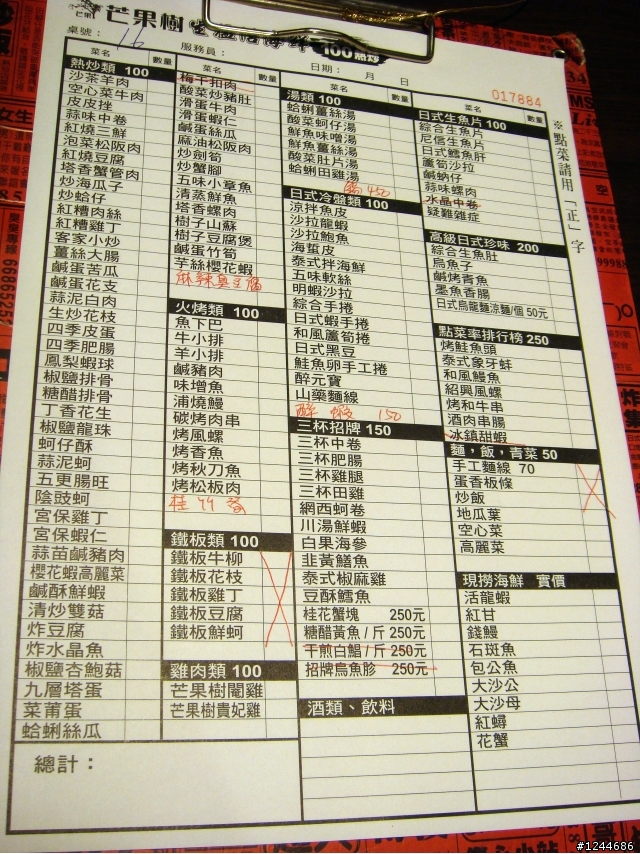 芒果樹生猛海鮮100熱炒
桌號： 16
服務員：
日期： 月 日
017884
※點菜請用「正」字
菜名 數量
熱炒類 100
沙茶羊肉
空心菜牛肉
皮皮挫
蒜味中卷
紅燒三鮮
泡菜松阪肉
紅燒豆腐
塔香蟹管肉
炒海瓜子
炒蛤仔
紅糟肉絲
紅糟雞丁
客家小炒
薑絲大腸
鹹蛋苦瓜
鹹蛋花支
蒜泥白肉
生炒花枝
四季皮蛋
四季肥腸
鳳梨蝦球
椒鹽排骨
糖醋排骨
丁香花生
椒鹽龍珠
蚵仔酥
蒜泥蚵
五更腸旺
蔭豉蚵
宮保雞丁
宮保蝦仁
蒜苗鹹豬肉
櫻花蝦高麗菜
鹹酥鮮蝦
清炒雙菇
炸豆腐
炸水晶魚
椒鹽杏鮑菇
九層塔蛋
菜蒲蛋
蛤蜊絲瓜
總計：
菜名 數量
梅干扣肉
酸菜炒豬肚
滑蛋牛肉
滑蛋蝦仁
鹹蛋絲瓜
麻油松阪肉
炒劍筍
炒蟹腳
五味小章魚
清蒸鮮魚
塔香螺肉
樹子山蘇
樹子豆腐煲
鹹蛋竹筍
芋絲櫻花蝦
麻辣臭豆腐
火烤類 100
魚下巴
牛小排
羊小排
鹹豬肉
味增魚
浦燒鰻
碳烤肉串
烤風螺
烤香魚
烤秋刀魚
烤松板肉
桂竹筍
鐵板類 100
鐵板牛柳
鐵板花枝
鐵板雞丁
鐵板豆腐
鐵板鮮蚵
雞肉類 100
芒果樹閹雞
芒果樹貴妃雞
菜名 數量
湯類 100
蛤蜊薑絲湯
酸菜蚵仔湯
鮮魚味噌湯
鮮魚薑絲湯
酸菜肚片湯
蛤蜊田雞湯
鍋 450
日式冷盤類 100
涼拌魚皮
沙拉龍蝦
沙拉鮑魚
海蜇皮
泰式拌海鮮
五味軟絲
明蝦沙拉
綜合手捲
日式蝦手捲
和風蘆筍捲
日式黑豆
鮭魚卵手工捲
醉元寶
山藥麵線
醉蝦 150
三杯招牌 150
三杯中卷
三杯肥腸
三杯雞腿
三杯田雞
網西蚵卷
川湯鮮蝦
白果海參
韭黃鱔魚
泰式椒麻雞
豆酥鱈魚
桂花蟹塊 250元
糖醋黃魚/斤 250元
干煎白鯧/斤 250元
招牌烏魚胗 250元
酒類、飲料
菜名 數量
日式生魚片 100
綜合生魚片
尼信生魚片
日式鱈魚肝
蘆筍沙拉
鹹蚋仔
蒜味螺肉
水晶中卷
疑難雜症
高級日式珍味 200
綜合生魚肚
烏魚子
鹹烤青魚
墨魚香腸
日式烏龍麵涼麵/個 50元
點菜率排行榜 250
烤鮭魚頭
泰式象牙蚌
和風鰻魚
紹興風螺
烤和牛串
酒肉串腸
冰鎮甜蝦
麵，飯，青菜 50
手工麵線 70
蛋香板條
炒飯
地瓜葉
空心菜
高麗菜
現撈海鮮 實價
活龍蝦
紅甘
錢鰻
石斑魚
包公魚
大沙公
大沙母
紅蟳
花蟹
#1244686